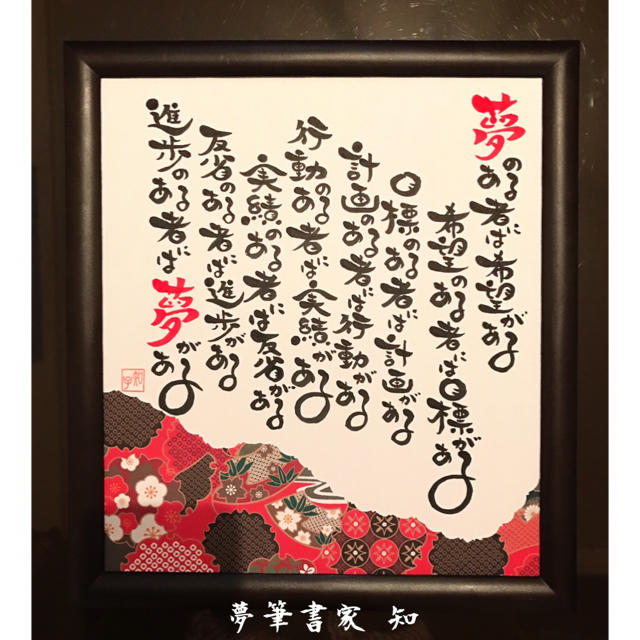 夢のある者には希望がある
希望のある者には目標がある
目標のある者には計画がある
計画のある者には行動がある
行動のある者には実績がある
実績のある者には反省がある
反省のある者には進歩がある
進歩のある者には夢がある
夢筆書家 知